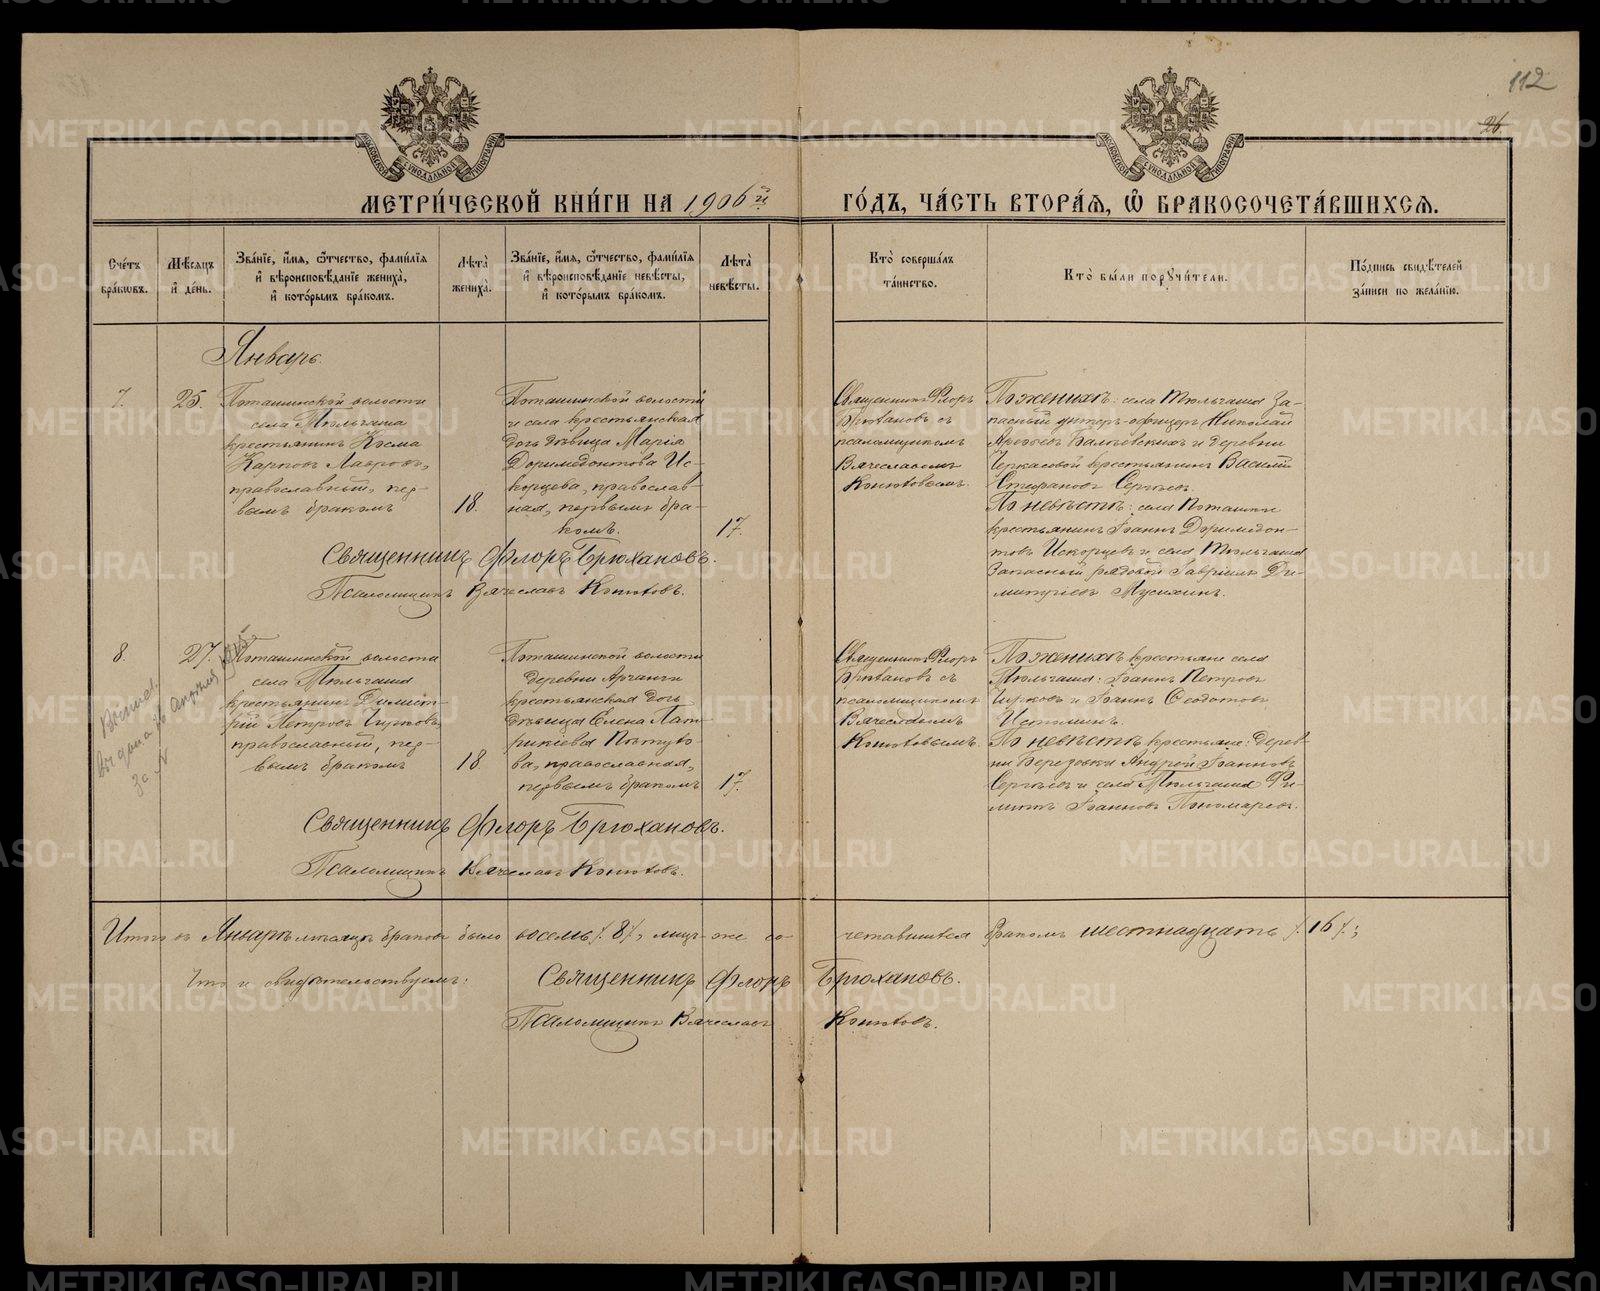 112
26
МОСКОВСКОЙ СУНОДАЛЬНОЙ ТИПОГРАФІИ
МОСКОВСКОЙ СУНОДАЛЬНОЙ ТИПОГРАФІИ
МЕТРИ́ЧЕСКОЙ КНИ́ГИ НА 1906й ГО́ДЪ, ЧА́СТЬ ВТОРА́Я, Ѡ БРАКОСОЧЕТА́ВШИХСЯ.
Сче́тъ бра́ковъ.
Мѣ́сяцъ и́ де́нь.
Зва́нїе, и́мя, ѻ́тчество, фами́лїя и́ вѣроисповѣ́данїе жениха̀, и́ кото́рымъ бра́комъ.
Лѣта̀ жениха̀.
Зва́нїе, и́мя, ѻ́тчество, фами́лїя и́ вѣроисповѣ́данїе невѣ́сты, и́ кото́рымъ бра́комъ.
Лѣта̀ невѣ́сты.
Кто̀ соверша́лъ та́инство.
Кто̀ бы́ли порꙋчи́тели.
По́дпись свидѣ́телей за́писи по жела́нїю.
Январь.
7.
25.
Поташинской волости
села Тюльгаша
крестьянинъ Косма
Карповъ Лавровъ,
православный, пер-
вымъ бракомъ
18.
Поташинской волости
и села крестьянская
дочь дѣвица Марія
Доримедонтова Ис-
корцева, православ-
ная, первымъ бра-
комъ.
17.
Священникъ Флоръ
Брюхановъ съ
псаломщикомъ
Вячеславомъ
Конюховымъ.
По женихѣ: села Тюльгаша За-
пасный унтеръ-офицеръ Николай
и деревни
Черкасовой крестьянинъ Василій
Стефановъ Сергѣевъ.
По невѣстѣ: села Поташки
крестьянинъ Іоаннъ Доримедон-
товъ Искорцевъ и села Тюльгаша
Запасный рядовой Гавріилъ Ди-
митріевъ Мусихинъ.
Священникъ Флоръ Брюхановъ.
Псаломщикъ Вячеславъ Конюховъ.
8.
27.
Выдана
за №
Поташинской волости
села Тюльгаша
крестьянинъ Димит-
рій Петровъ Чирковъ,
православный, пер-
вымъ бракомъ
18
Поташинской волости
деревни
крестьянская дочь
дѣвица Елена Пат-
рикіева Пѣтухо-
ва, православная,
первымъ бракомъ
17.
Священникъ Флоръ
Брюхановъ съ
псаломщикомъ
Вячеславомъ
Конюховымъ.
По женихѣ крестьяне села
Тюльгаша: Іоаннъ Петровъ
Чирковъ и Іоаннъ Ѳеодотовъ
Истоминъ.
По невѣстѣ крестьяне: дерев-
ни Березовки Андрей Іоанновъ
Сергѣевъ и села Тюльгаша Фи-
липпъ Іоанновъ Пономаревъ.
Священникъ Флоръ Брюхановъ.
Псаломщикъ Вячеславъ Конюховъ.
Итого въ Январѣ мѣсяцѣ браковъ было восемь /8/, лицъ же со- четавшихся бракомъ шестнадцать /16/;
Что и свидѣтельствуемъ: Священникъ Флоръ Брюхановъ.
Псаломщикъ Вячеславъ Конюховъ.
METRIKI.GASO-URAL.RU